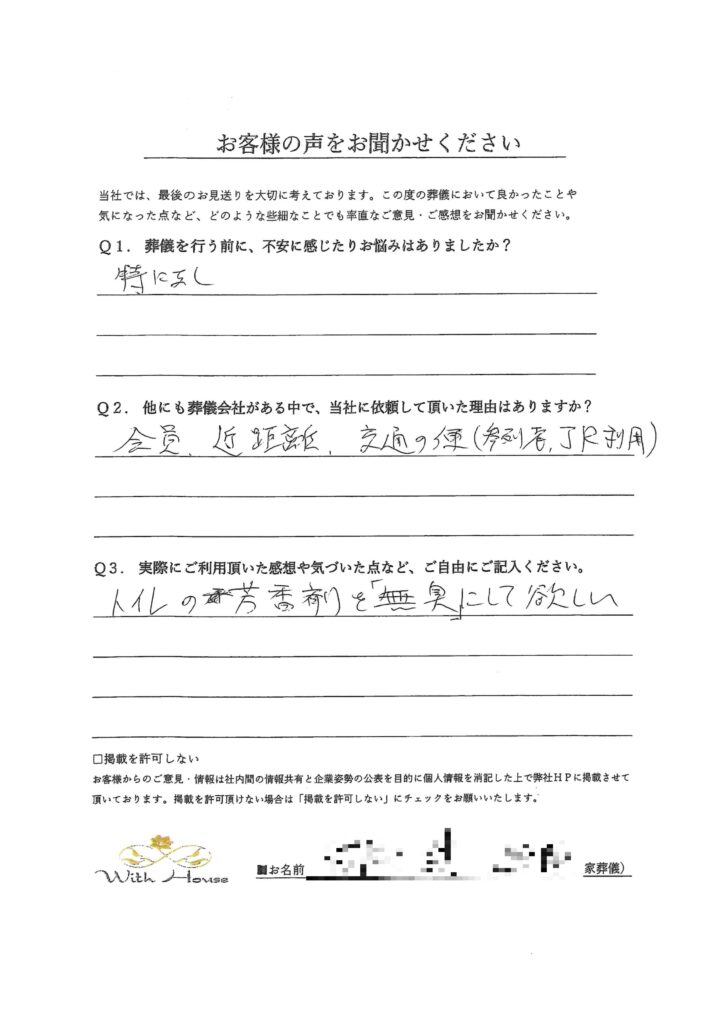 お客様の声をお聞かせください
当社では、最後のお見送りを大切に考えております。この度の葬儀において良かったことや
気になった点など、どのような些細なことでも率直なご意見・ご感想をお聞かせください。
Q1. 葬儀を行う前に、不安に感じたりお悩みはありましたか？
特になし
Q2. 他にも葬儀会社がある中で、当社に依頼して頂いた理由はありますか？
会員、近距離、交通の便(参列者,JR利用)
Q3. 実際にご利用頂いた感想や気づいた点など、ご自由にご記入ください。
トイレの芳香剤を「無臭」にして欲しい
□掲載を許可しない
お客様からのご意見・情報は社内間の情報共有と企業姿勢の公表を目的に個人情報を消記した上で弊社HPに掲載させて
頂いております。掲載を許可頂けない場合は「掲載を許可しない」にチェックをお願いいたします。
With House
お名前 家葬儀）